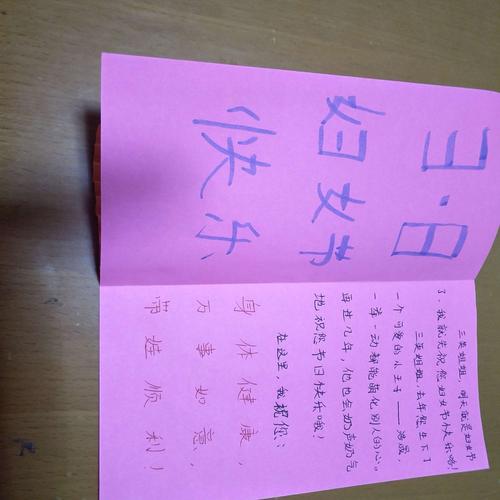 3·8
妇女节
快乐
三英姐姐，明天就是妇女节
了，我就先祝您妇女节快乐啦！
三英姐姐，去年您生下了
一个可爱的小王子——浩晟，
一举一动都能萌化别人的心。
再过几年，他也会奶声奶气
地祝您节日快乐哦！
在这里，我祝你：
身体健康，
万事如意，
带娃顺利！